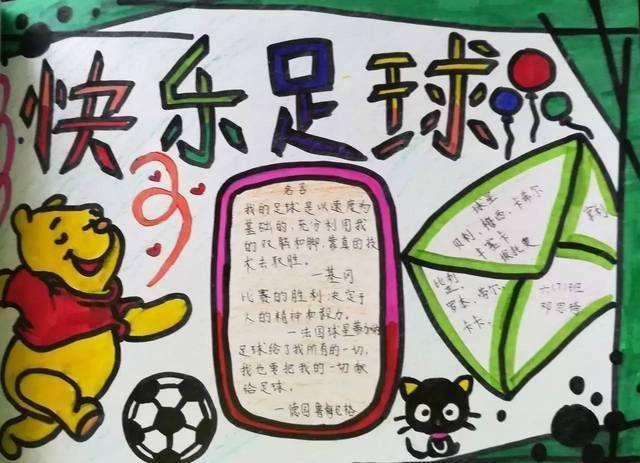 快乐足球
名言
我的足球是以速度为
基础的,充分利用我
的双脚和脚,靠真的技
术去取胜。
—基冈
比赛的胜利决定于
人的精神和毅力。
—法国球星
足球给了我所有的一切,
我也要把我的一切献
给足球。
—德国
球星
贝利、梅西、卡希尔
卡塞卡
罗本、
卡卡、
六(7)班